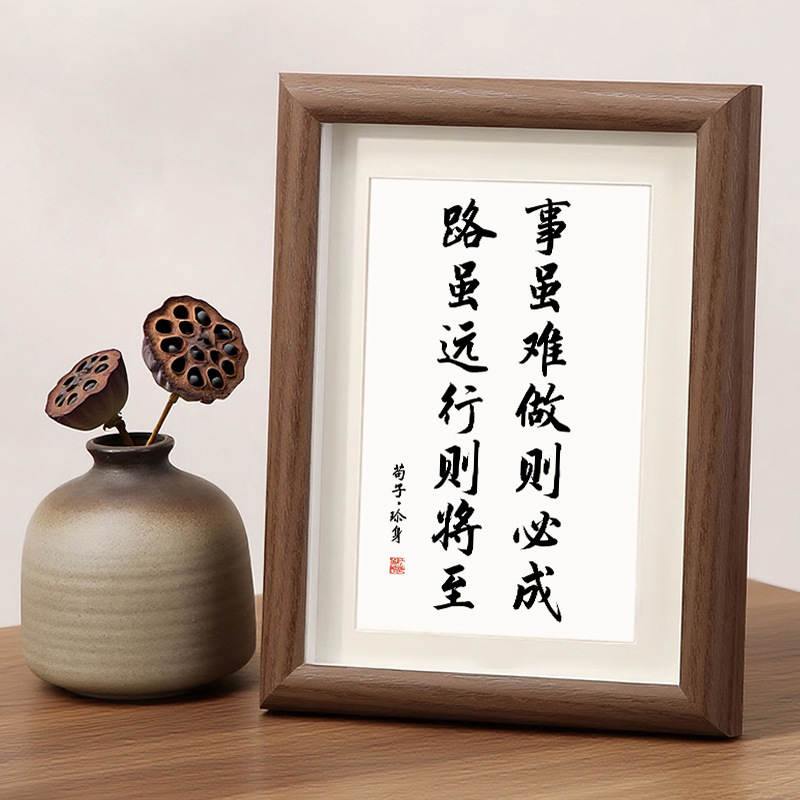 事虽难做则必成
路虽远行则将至
荀子·修身